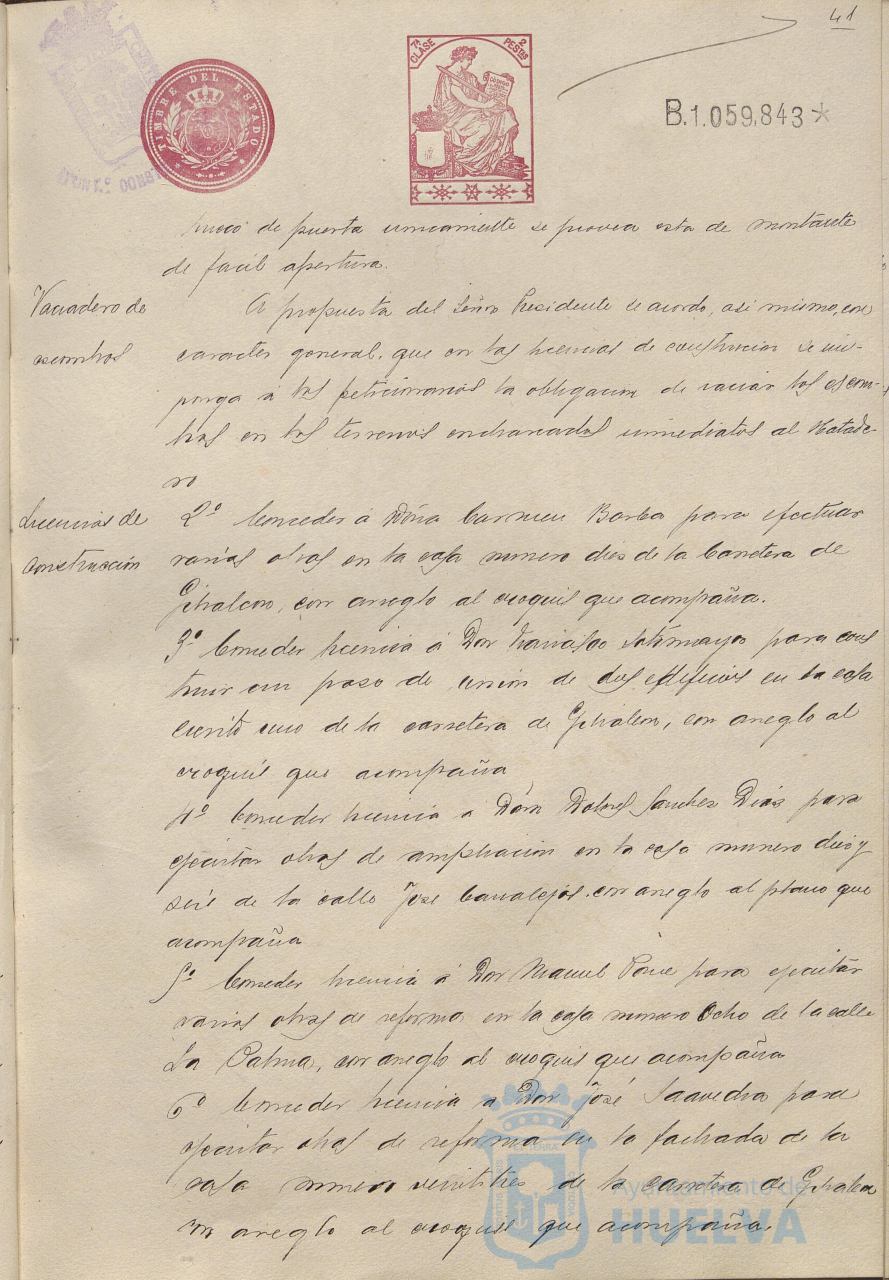 41
7ª CLASE 2 PESTAS
TIMBRE DEL ESTADO
B.1.059.843*
hueco de puerta unicamente se provea esta de montante
de facil apertura.
Vaciadero de
escombros
A propuesta del Señor Presidente se acordó, asi mismo, con
caracter general, que en las licencias de construccion se im-
ponga á los peticionarios la obligacion de vaciar los escom-
bros en los terrenos encharcados inmediatos al Matade-
ro
Licencias de
construcción
2º Conceder á Doña Carmen Barba para efectuar
varias obras en la casa numero dies de la Carretera de
Gibraleon, con arreglo al croquis que acompaña.
3º Conceder licencia á Don Sotomayor para cons
truir un paso de unión de dos edificios en la casa
ciento uno de la carretera de Gibraleon, con arreglo al
croquis que acompaña
4º Conceder licencia á Doña Dolores Sanchez Diaz para
ejecutar obras de ampliacion en la casa numero dies y
seis de la calle José Canalejas con arreglo al plano que
acompaña
5º Conceder licencia á Don Manuel Ponce para ejecutar
varias obras de reforma en la casa numero Ocho de la calle
La Palma, con arreglo al croquis que acompaña
6º Conceder licencia á Don José Saavedra para
ejecutar obras de reforma en la fachada de la
casa numero veintitres de la carretera de Gibraleon
con arreglo al croquis que acompaña.
Ayuntamiento de
HUELVA